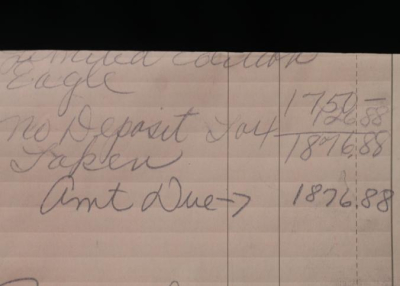 Limited Edition
Eagle 1750—
No Deposit 126.88
Taken 1876.88
Amt Due→ 1876.88